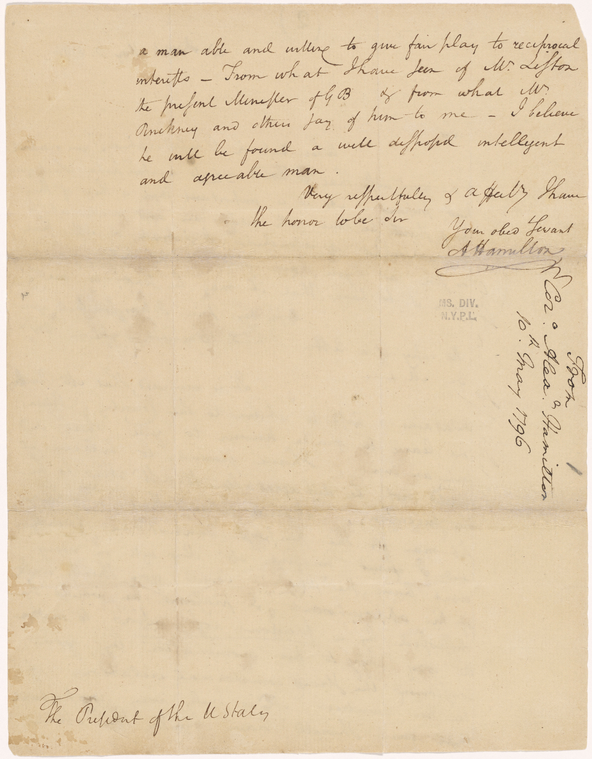 a man able and willing to give fair play to reciprocal
interests – From what I have seen of Mr. Liston
the present Minister of GB & from what Mr
Pinckney and others say of him to me – I believe
he will be found a well disposed intelligent
and agreeable man.
Very respectfully & Affecty I have
the honor to be Sir
Your obed Servant
A Hamilton
MS. DIV.
N.Y.P.L.
From
Colo. Alexa. Hamilton
10th. May 1796
The President of the U States